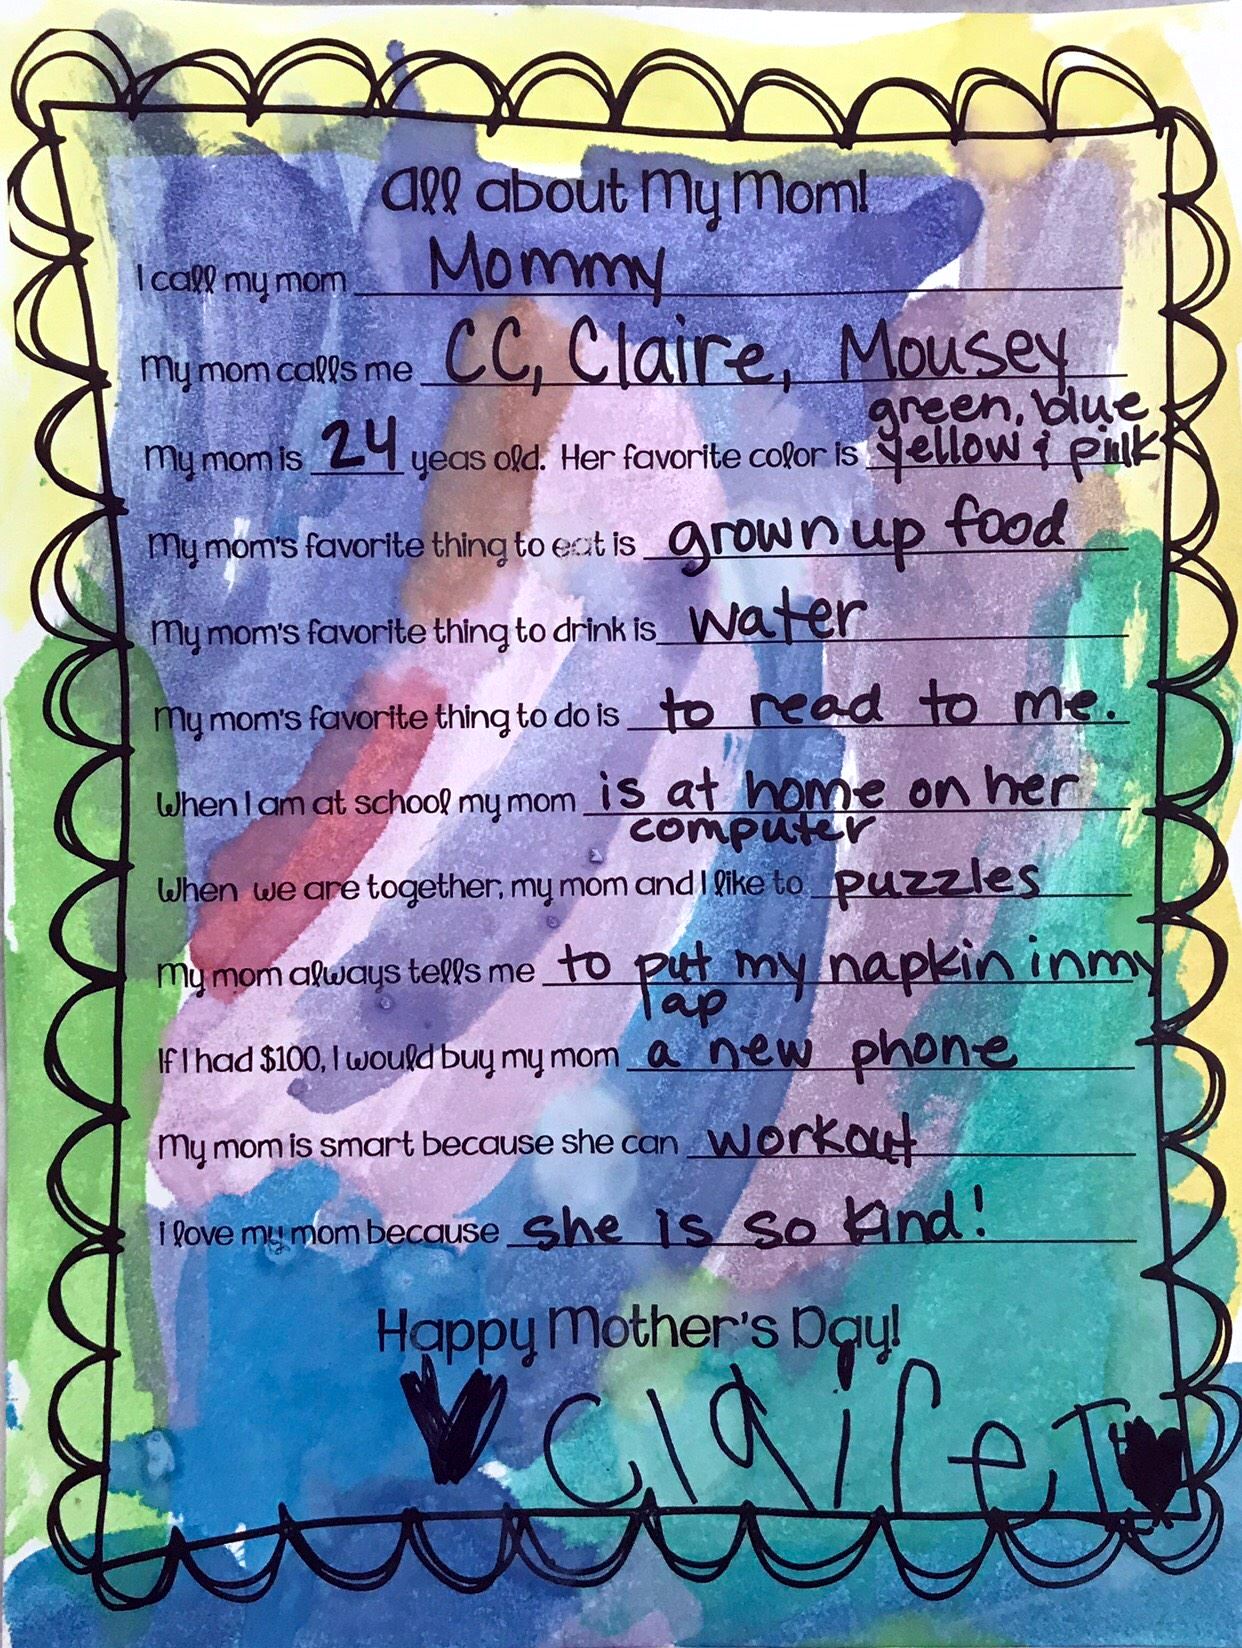 All about My Mom!
I call my mom Mommy
My mom calls me CC, Claire, Mousey
green, blue
My mom is 24 yeas old. Her favorite color is yellow & pink
My mom's favorite thing to eat is grown up food
My mom's favorite thing to drink is water
My mom's favorite thing to do is to read to me.
When I am at school my mom is at home on her
computer
When we are together, my mom and I like to puzzles
My mom always tells me to put my napkin in my
lap
If I had $100, I would buy my mom a new phone
My mom is smart because she can workout
i love my mom because she is so kind!
Happy Mother's Day!
Claire T